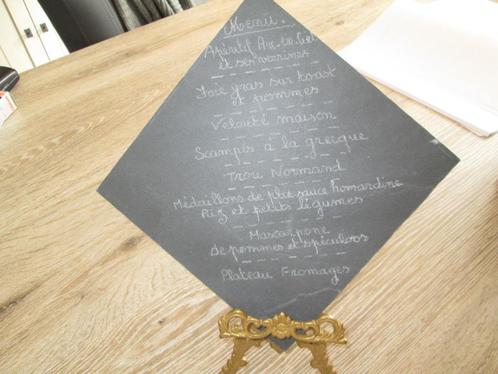 Menu.
Apéritif Arc-en-Ciel
et ses verrines
Foie gras sur toast
et pommes
Velouté maison
Scampis a la grecque
Trou Normand
Médaillons de plat sauce homardine
Riz et petits légumes
Mascarpone
de pommes et spéculoos
Plateau Fromages